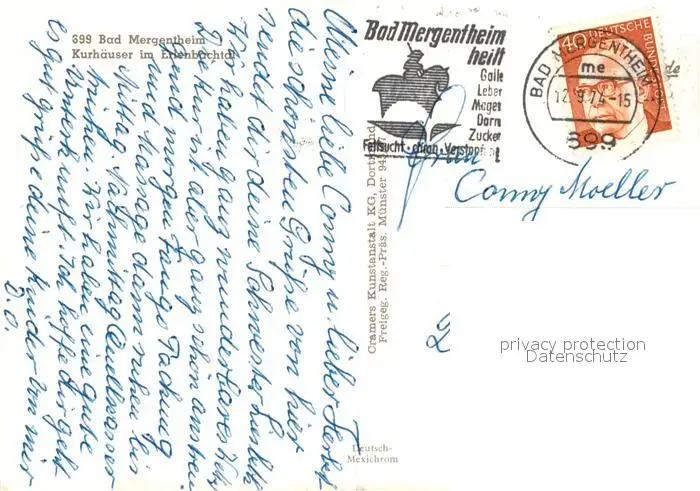 399 Bad Mergentheim
Kurhäuser im Erlenbachtal
Meine liebe Conny u. lieber Herbert
die schönsten Grüße von hier
sendet dir deine Schwester
Wir haben ganz wunderbares
die Kur aber ganz schön anstren
gend morgen fango Packung
und Massage dann ruhen bis
Mittag Nachmittag Quellwasser
trinken. Wir haben eine gute
Unterkunft. Ich hoffe dir geht
es gut grüße deine Kinder von mir
Bad Mergentheim
heilt
Galle
Leber
Magen
Darm
Zucker
Fettsucht · chron. Verstopfung
BAD MERGENTHEIM
me
12.9.74-15
699
40 DEUTSCHE BUNDESPOST
Frau
Conny Moeller
Cramers Kunstanstalt KG, Dortmund
Freigeg. Reg.-Präs. Münster
Deutsch-
Mexichrom
privacy protection
Datenschutz